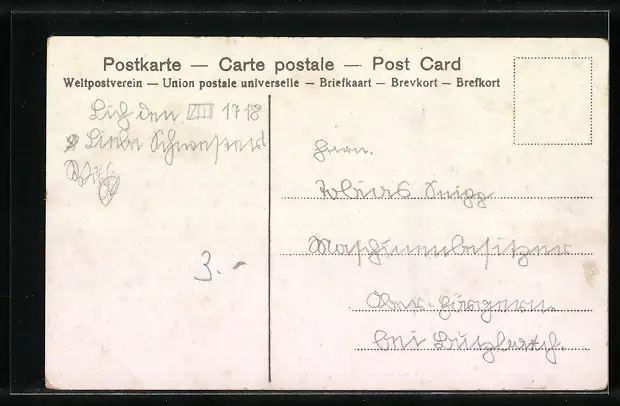 Postkarte — Carte postale — Post Card
Weltpostverein — Union postale universelle — Briefkaart — Brevkort — Brefkort
Lich den VIII 1718
Liebe Schwester
3.-
Herrn.
Tobias
Maschinenbesitzer
Ober-Hörgern.
bei Butzbach.